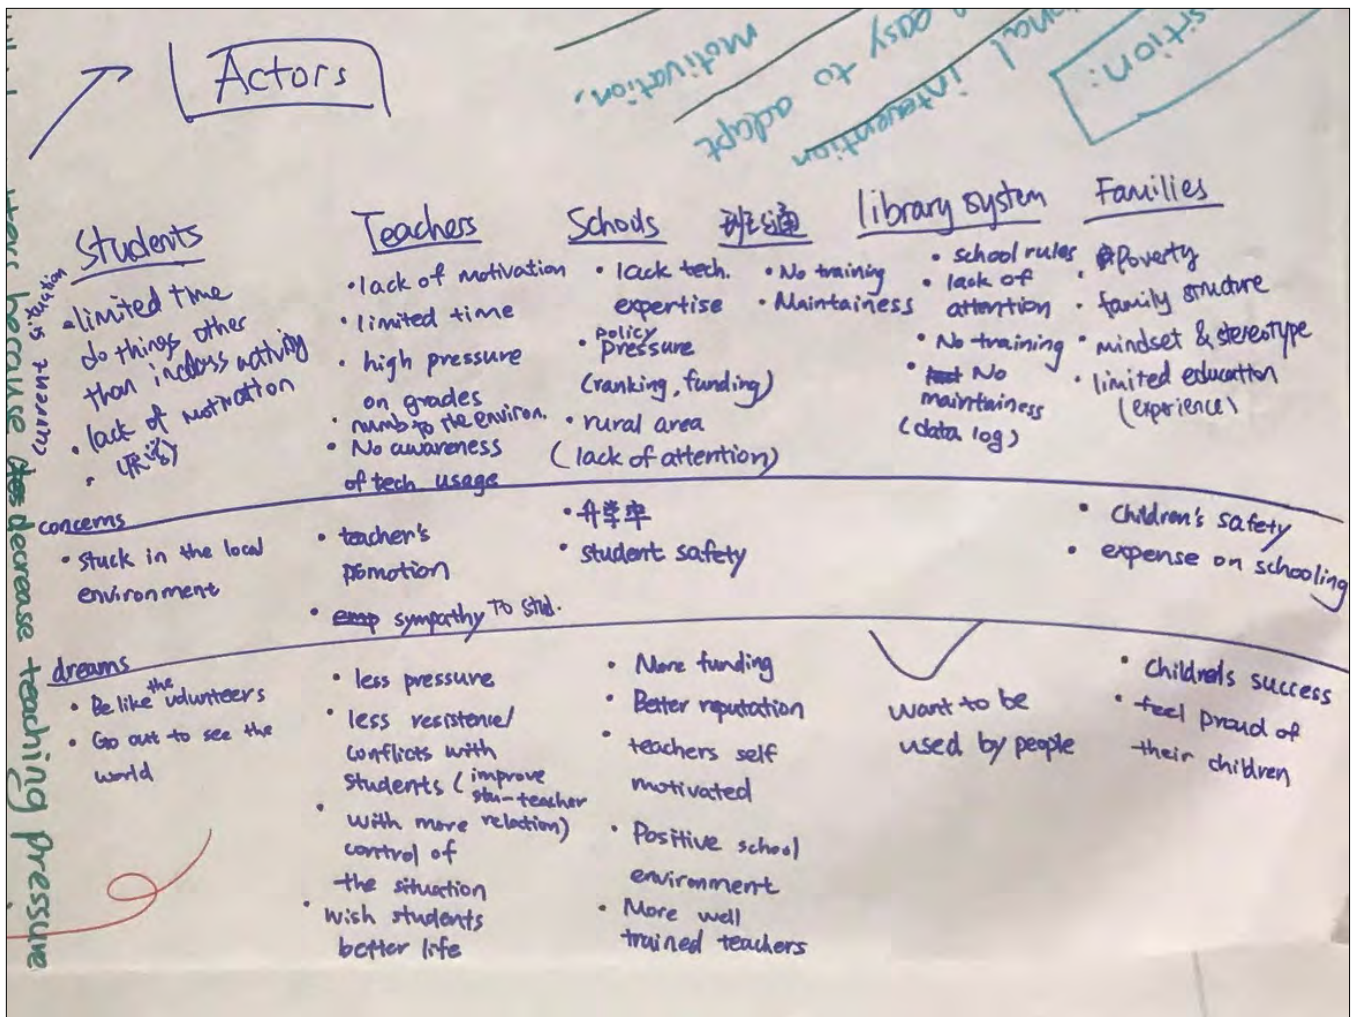 Actors
motivation.
easy to adapt
intervention
Students
• limited time
do things other
than inclass activity
• lack of motivation
Teachers
• lack of motivation
• limited time
• high pressure
on grades
• numb to the environ.
• No awareness
of tech usage
Schools
• lack tech.
expertise
policy
• pressure
(ranking, funding)
• rural area
(lack of attention)
班班通
• No training
• Maintainess
library system
• school rules
• lack of
attention
• No training
• No
maintainess
(data log)
Families
Poverty
• family structure
• mindset & stereotype
• limited education
(experience)
current situation
concerns
• stuck in the local
environment
• teacher's
promotion
• emp sympathy to stud.
• 升学率
• student safety
• Children's safety
• expense on schooling
dreams
• Be like the volunteers
• Go out to see the
world
• less pressure
• less resistence/
conflicts with
students (improve
stu-teacher
relation)
• with more
control of
the situation
• wish students
better life
• More funding
• Better reputation
• teachers self
motivated
• Positive school
environment
• More well
trained teachers
want to be
used by people
• Children's success
• feel proud of
their children
because decrease teaching pressure